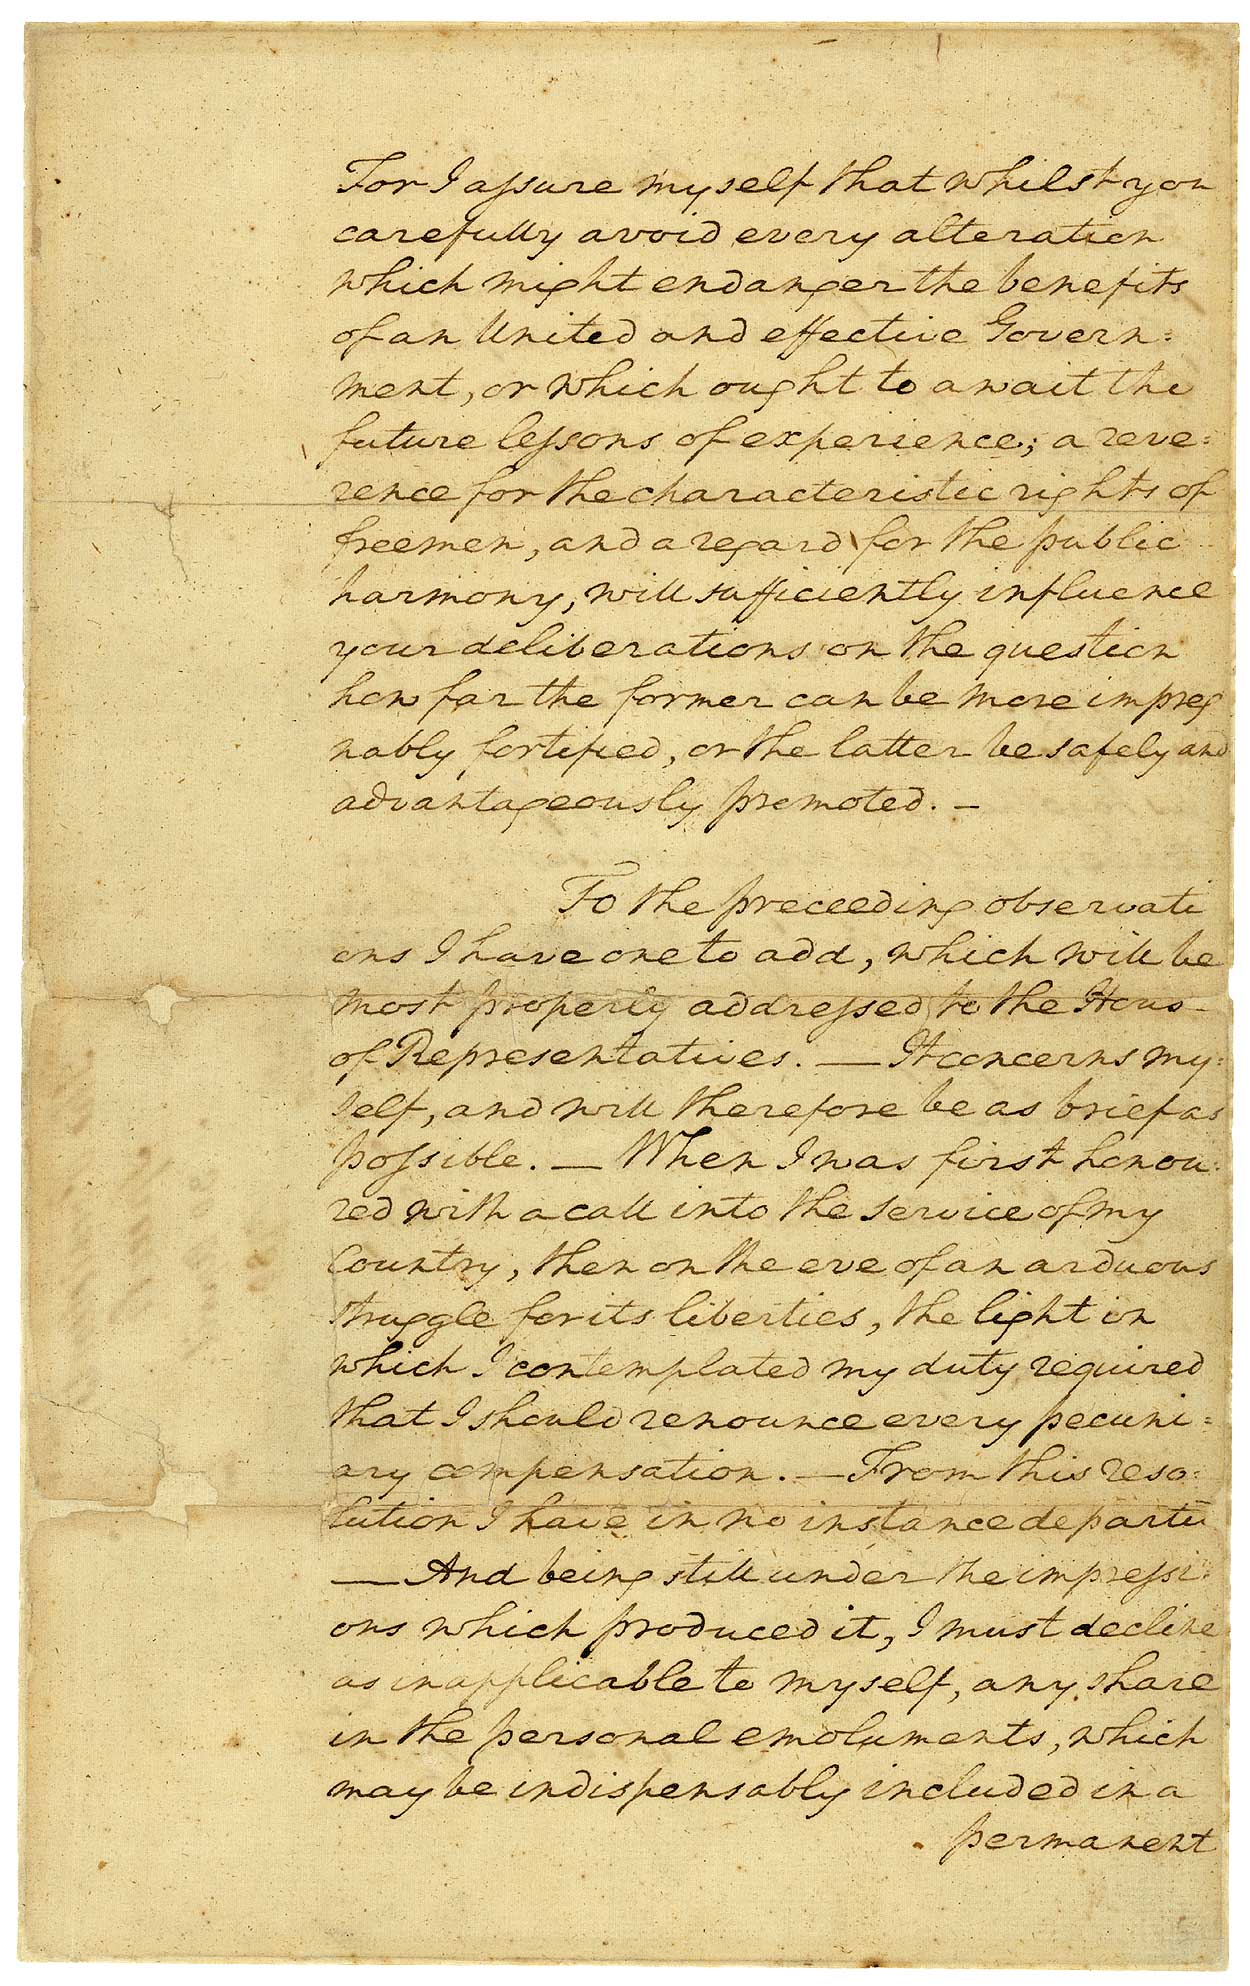 For I assure myself that whilst you
carefully avoid every alteration
which might endanger the benefits
of an United and effective Govern=
ment, or which ought to await the
future lessons of experience; a reve=
rence for the characteristic rights of
freemen, and a regard for the public
harmony, will sufficiently influence
your deliberations on the question
how far the former can be more impreg
nably fortified, or the latter be safely and
advantageously promoted. —
To the preceeding observati
ons I have one to add, which will be
most properly addressed to the Hous
of Representatives. — It concerns my=
self, and will therefore be as brief as
possible. — When I was first honou=
red with a call into the Service of my
Country, then on the eve of an arduous
struggle for its liberties, the light in
which I contemplated my duty required
that I should renounce every pecuni=
ary compensation. — From this reso=
lution I have in no instance departe
— And being still under the impressi=
ons which produced it, I must decline
as inapplicable to myself, any share
in the personal emoluments, which
may be indispensably included in a
permanent